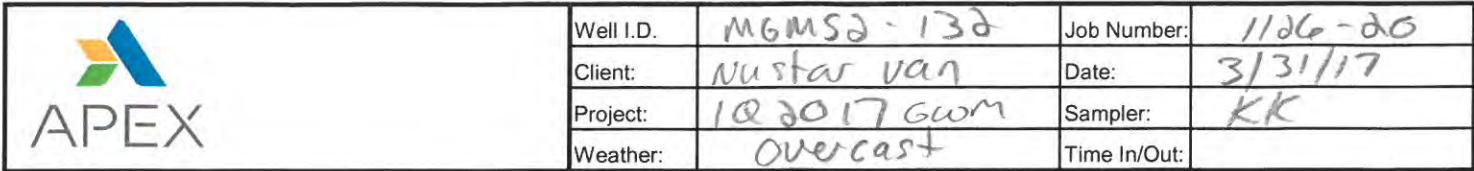 APEX
Well I.D. MGMS2-132 Job Number: 1126-20
Client: Nustar van Date: 3/31/17
Project: 1Q 2017 GWM Sampler: KK
Weather: Overcast Time In/Out: